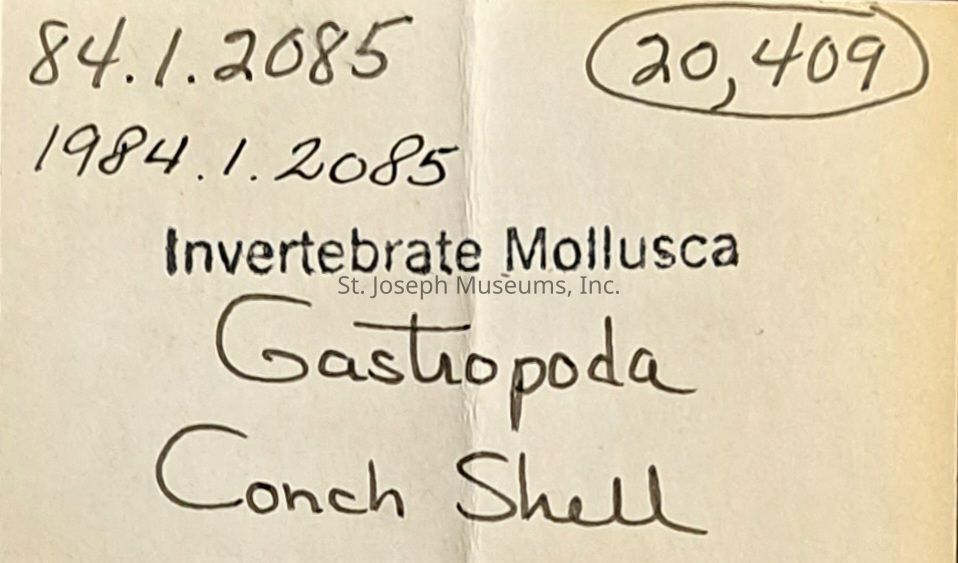 84.1.2085 20,409
1984.1.2085
Invertebrate Mollusca
St. Joseph Museums, Inc.
Gastropoda
Conch Shell